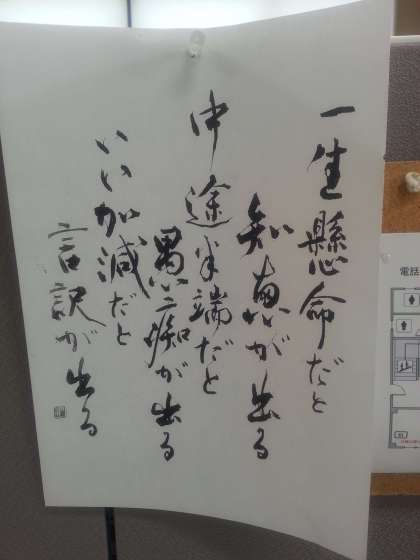 一生懸命だと
知恵が出る
中途半端だと
愚痴が出る
いい加減だと
言訳が出る
電話